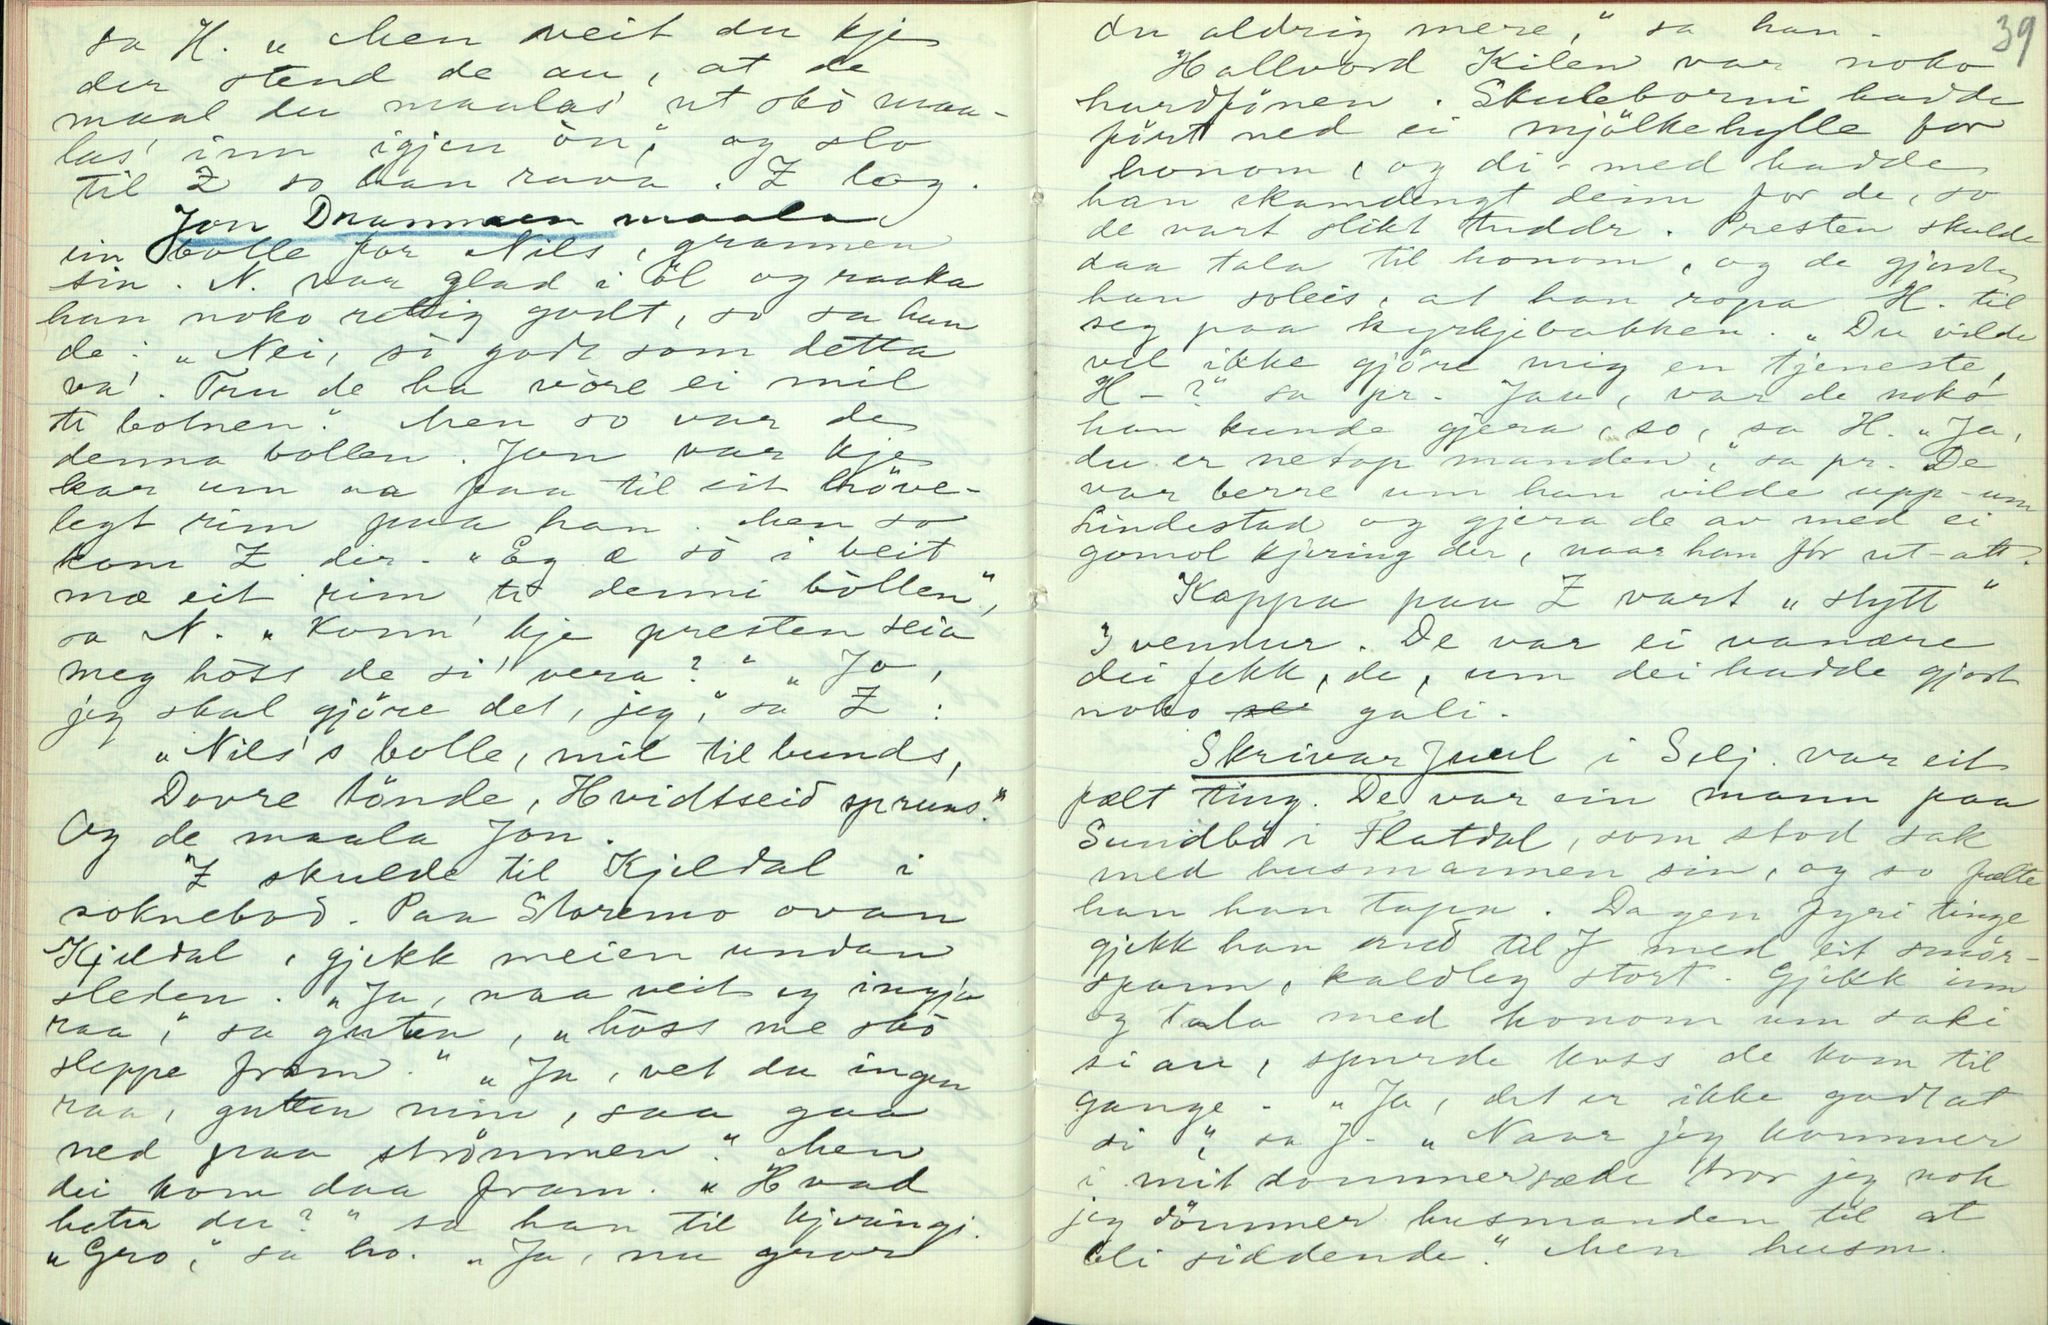 sa H. „Men veit du kje
der stend de au, at de
maal du maalas' ut skò maa-
las' inn igjen òn," og slo
til Z so han rava. Z log.
Jon Drammen maala
ein bolle for Nils, grannen
sin. N. var glad i öl og raaka
han noko rettig godt, so sa han
de: „Nei, sò godt som detta
va'. Tru de ha vöre ei mil
te botnen." Men so var de
denna bollen. Jon var kje
kar um aa faa til eit höve-
legt rim paa han. Men so
kom Z der. „Eg æ sò i beit
mæ eit rim te denni böllen",
sa N. „Konn' kje presten seia
meg höss de si' vera?" „Jo,
jeg skal gjöre det, jeg," sa Z:
„Nils's bolle, mil til bunds,
Dovre tönde, Hvidtseid spruns."
Og de maala Jon.
Z skulde til Kjeldal i
soknebod. Paa Storemo ovan
Kjeldal, gjekk meien undan
sleden. „Ja, naa veit eg ingjo
raa," sa guten, „höss me skò
sleppe fram." „Ja, vet du ingen
raa, gutten min, saa gaa
ned paa strömmen." Men
dei kom daa fram. „Hvad
heter du?" sa han til kjeringi.
„Gro," sa ho. „Ja, nu gror
39
du aldrig mere," sa han.
Hallvord Kilen var noko
hardfönen. Skuleborni hadde
fört ned ei mjölkehylle for
honom, og di-med hadde
han skamdengt deim for de, so
de vart slikt tuddr. Presten skulde
daa tala til honom, og de gjorde
han soleis, at han ropa H. til
seg paa kyrkjebakken. „Du vilde
vel ikke gjöre mig en tjeneste,
H-?" sa pr. Jau, var de noko
han kunde gjera, so, sa H. „Ja,
du er netop manden," sa pr. De
var berre um han vilde upp-um
Lindestad og gjera de av med ei
gomol kjering der, naar han för ut-att.
Kappa paa Z vart „stytt"
3 vendur. De var ei vanære
dei fekk, de, um dei hadde gjort
noko gali.
Skrivar Juul i Selj. var eit
fælt ting. De var ein mann paa
Sundbö i Flatdal, som stod sak
med husmannen sin, og so fælte
han han tapa. Dagen fyri tinge
gjekk han ned til J med eit smör-
spann, kaldleg stort. Gjekk inn
og tala med honom um saki
si au, spurde koss de kom til
gange. „Ja, det er ikke godt at
si," sa J. „Naar jeg kommer
i mit dommersæde tror jeg nok
jeg dömmer husmanden til at
bli siddende." Men husm.